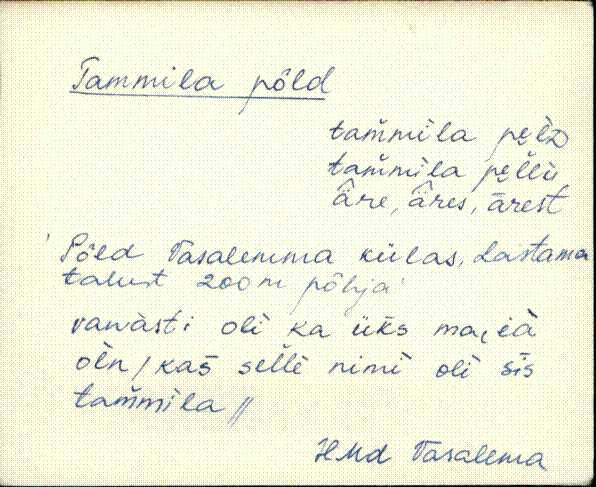 Tammila põld
tam̆mi̮la pe̮l̀D
tam̆mi̮la pe̮l̆lù
äre, äres, ärest
'Põld Vasalemma külas, Lastama
talust 200 m põhja'
vanàsti olì ka ük̆s
òl̀n / kas̆ sel̆lè nimì olì sìs
tam̆mila //
HMd Vasalema